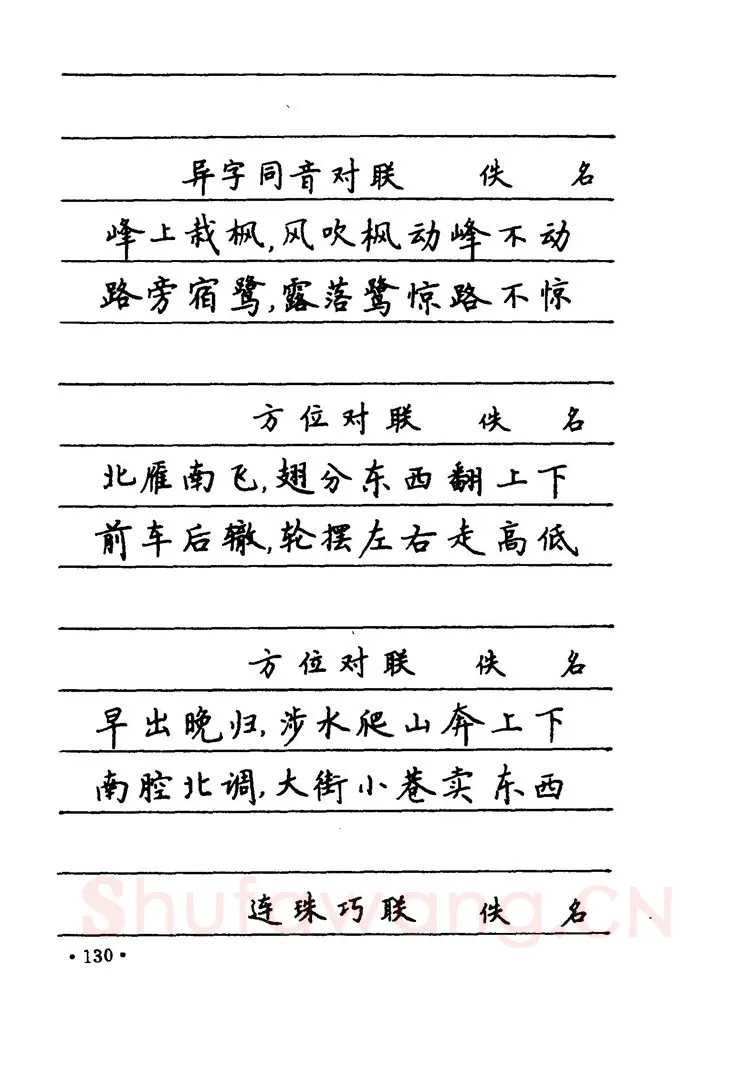 异字同音对联 佚名
峰上栽枫,风吹枫动峰不动
路旁宿鹭,露落鹭惊路不惊
方位对联 佚名
北雁南飞,翅分东西翻上下
前车后辙,轮摆左右走高低
方位对联 佚名
早出晚归,涉水爬山奔上下
南腔北调,大街小巷卖东西
连珠巧联 佚名
Shufawang.CN
·130·